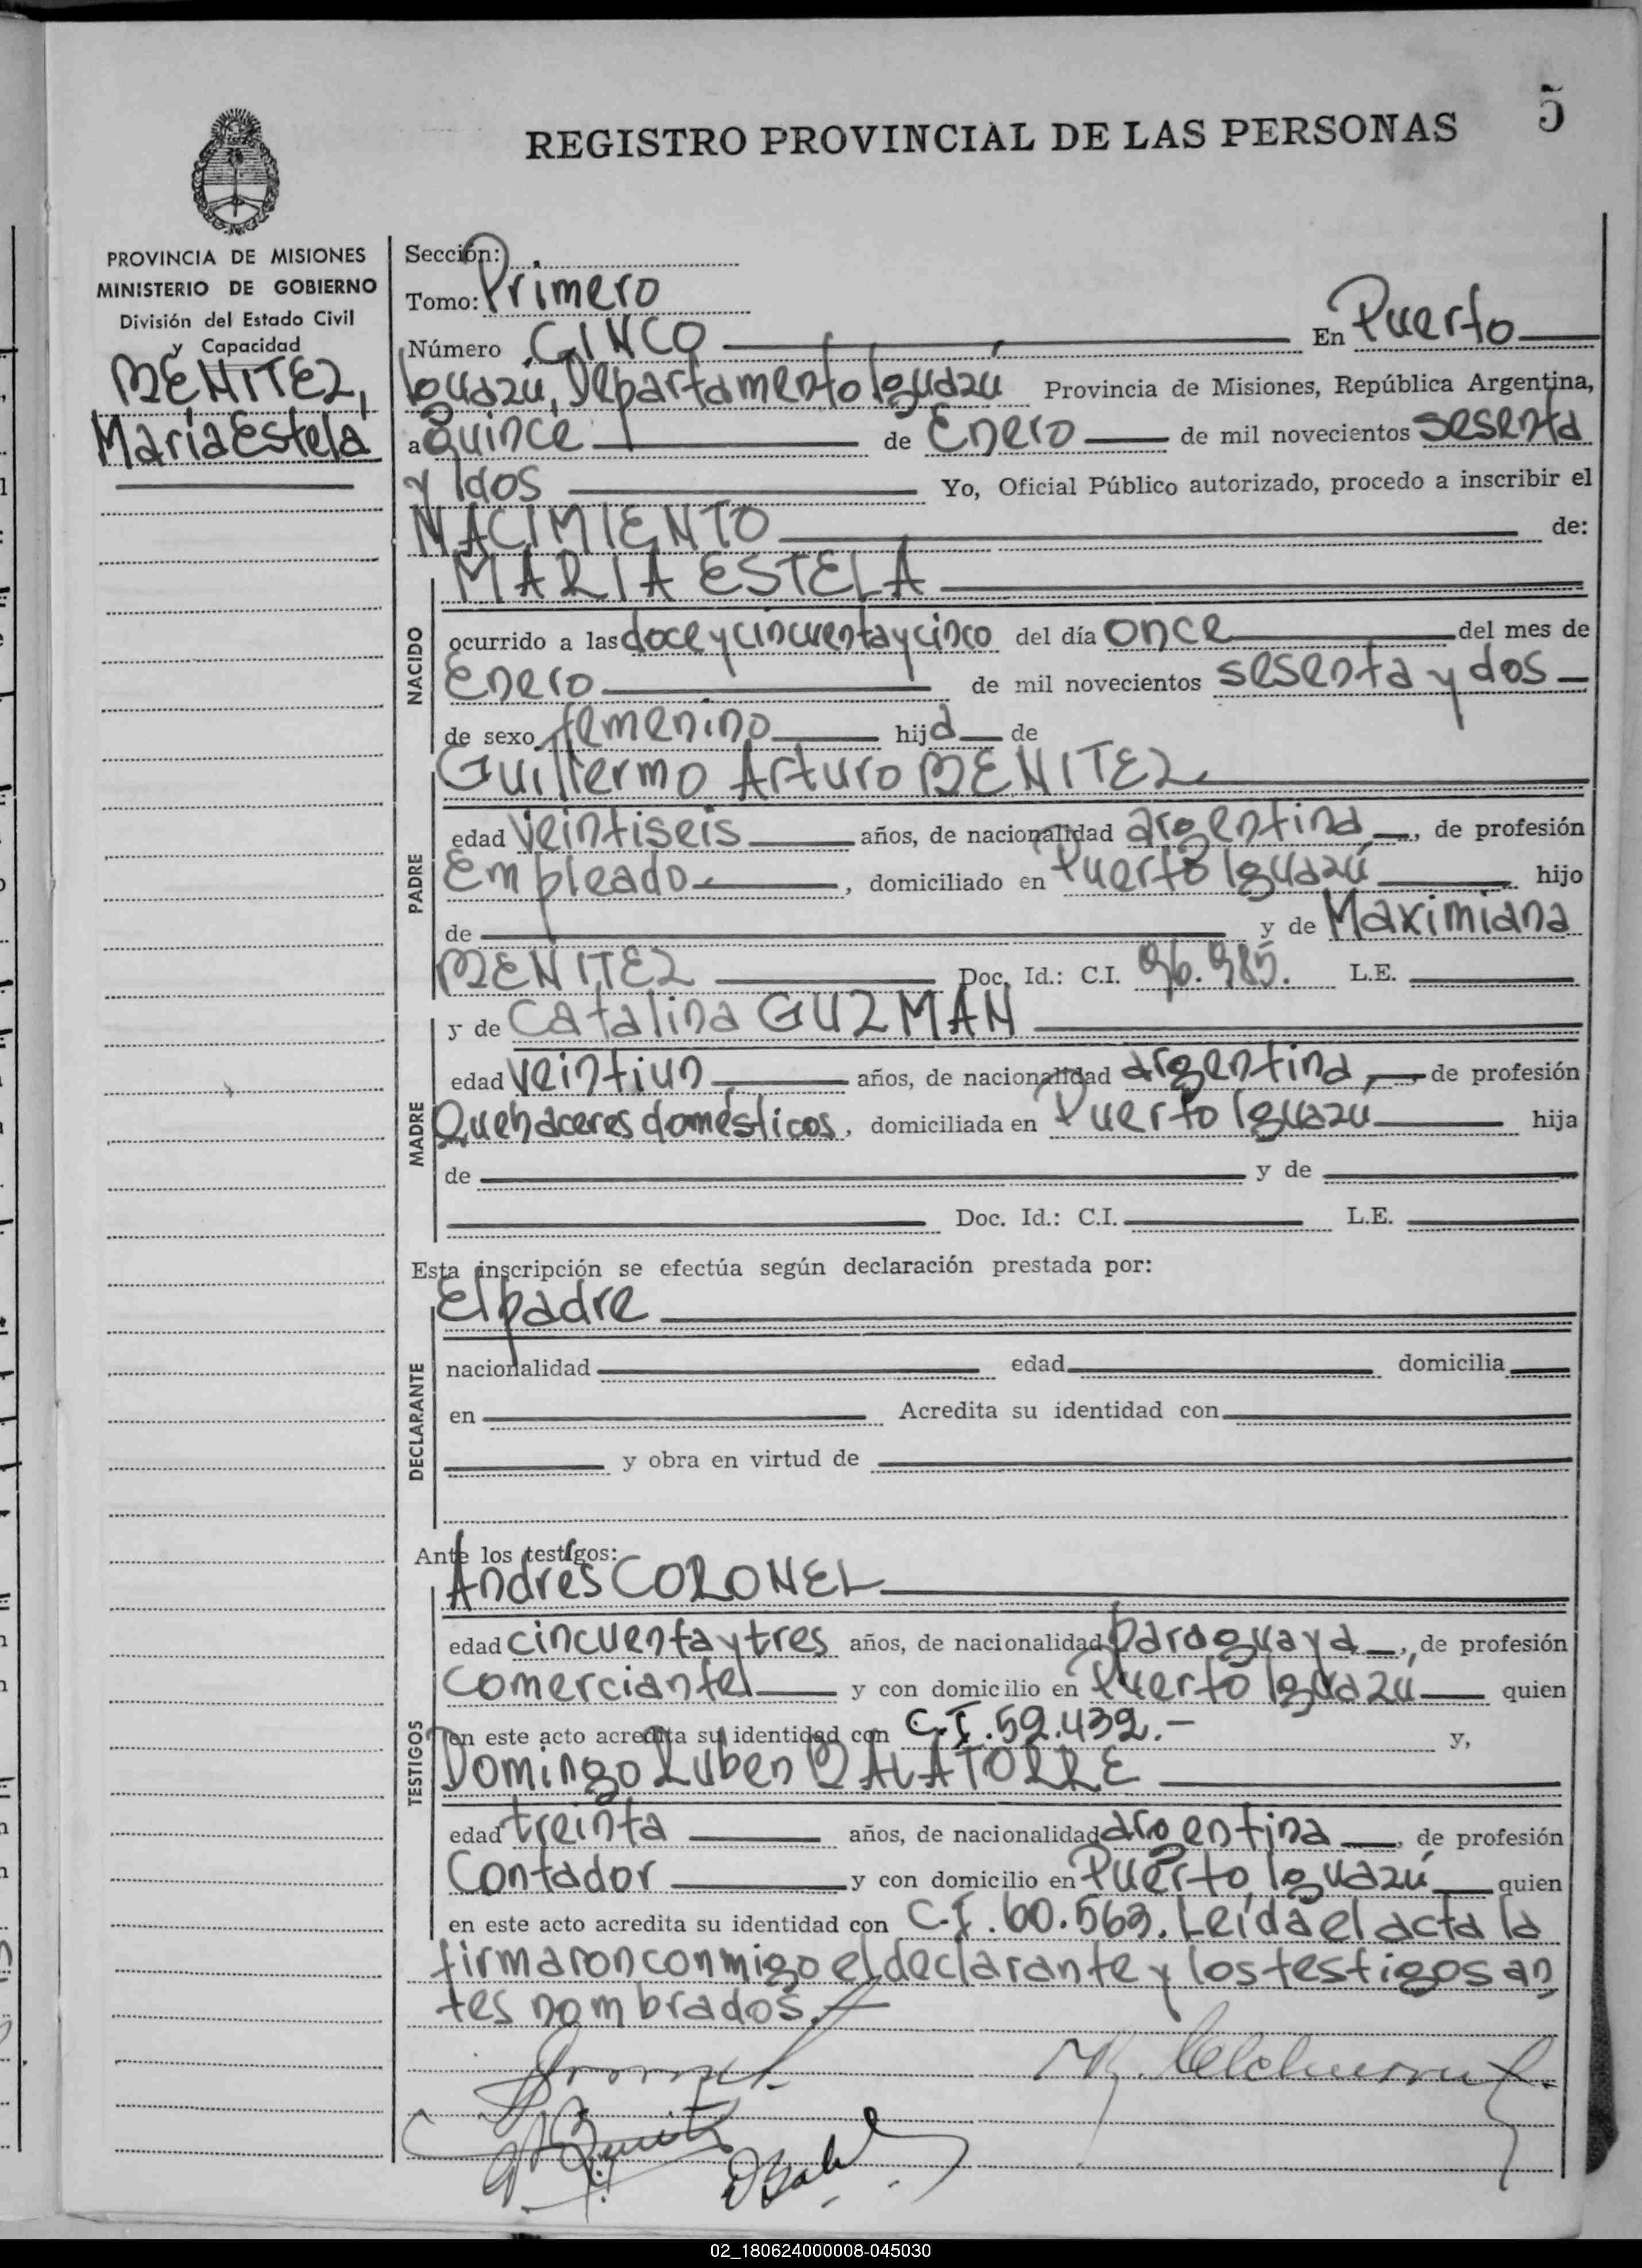 REGISTRO PROVINCIAL DE LAS PERSONAS 5
PROVINCIA DE MISIONES
MINISTERIO DE GOBIERNO
División del Estado Civil
y Capacidad
BENITEZ,
María Estela
Sección:
Tomo: Primero
Número CINCO En Puerto
Iguazú, Departamento Iguazú Provincia de Misiones, República Argentina,
a quince de Enero de mil novecientos sesenta
y dos Yo, Oficial Público autorizado, procedo a inscribir el
NACIMIENTO de:
MARIA ESTELA
NACIDO
ocurrido a las doce y cincuenta y cinco del día once del mes de
Enero de mil novecientos sesenta y dos
de sexo femenino hija de
Guillermo Arturo BENITEZ
PADRE
edad veintiseis años, de nacionalidad argentina, de profesión
Empleado, domiciliado en Puerto Iguazú hijo
de y de Maximiana
BENITEZ Doc. Id.: C.I. 96.985. L.E.
MADRE
y de Catalina GUZMAN
edad veintiun años, de nacionalidad argentina, de profesión
Quehaceres domésticos, domiciliada en Puerto Iguazú hija
de y de
Doc. Id.: C.I. L.E.
Esta inscripción se efectúa según declaración prestada por:
El padre
DECLARANTE
nacionalidad edad domicilia
en Acredita su identidad con
y obra en virtud de
Ante los testigos:
Andrés CORONEL
TESTIGOS
edad cincuenta y tres años, de nacionalidad paraguaya, de profesión
Comerciante y con domicilio en Puerto Iguazú quien
en este acto acredita su identidad con C.I. 59.432.- y,
Domingo Ruben BALATORRE
edad treinta años, de nacionalidad argentina, de profesión
Contador y con domicilio en Puerto Iguazú quien
en este acto acredita su identidad con C.I. 60.563. Leída el acta la
firmaron conmigo el declarante y los testigos an
tes nombrados.
02_180624000008-045030